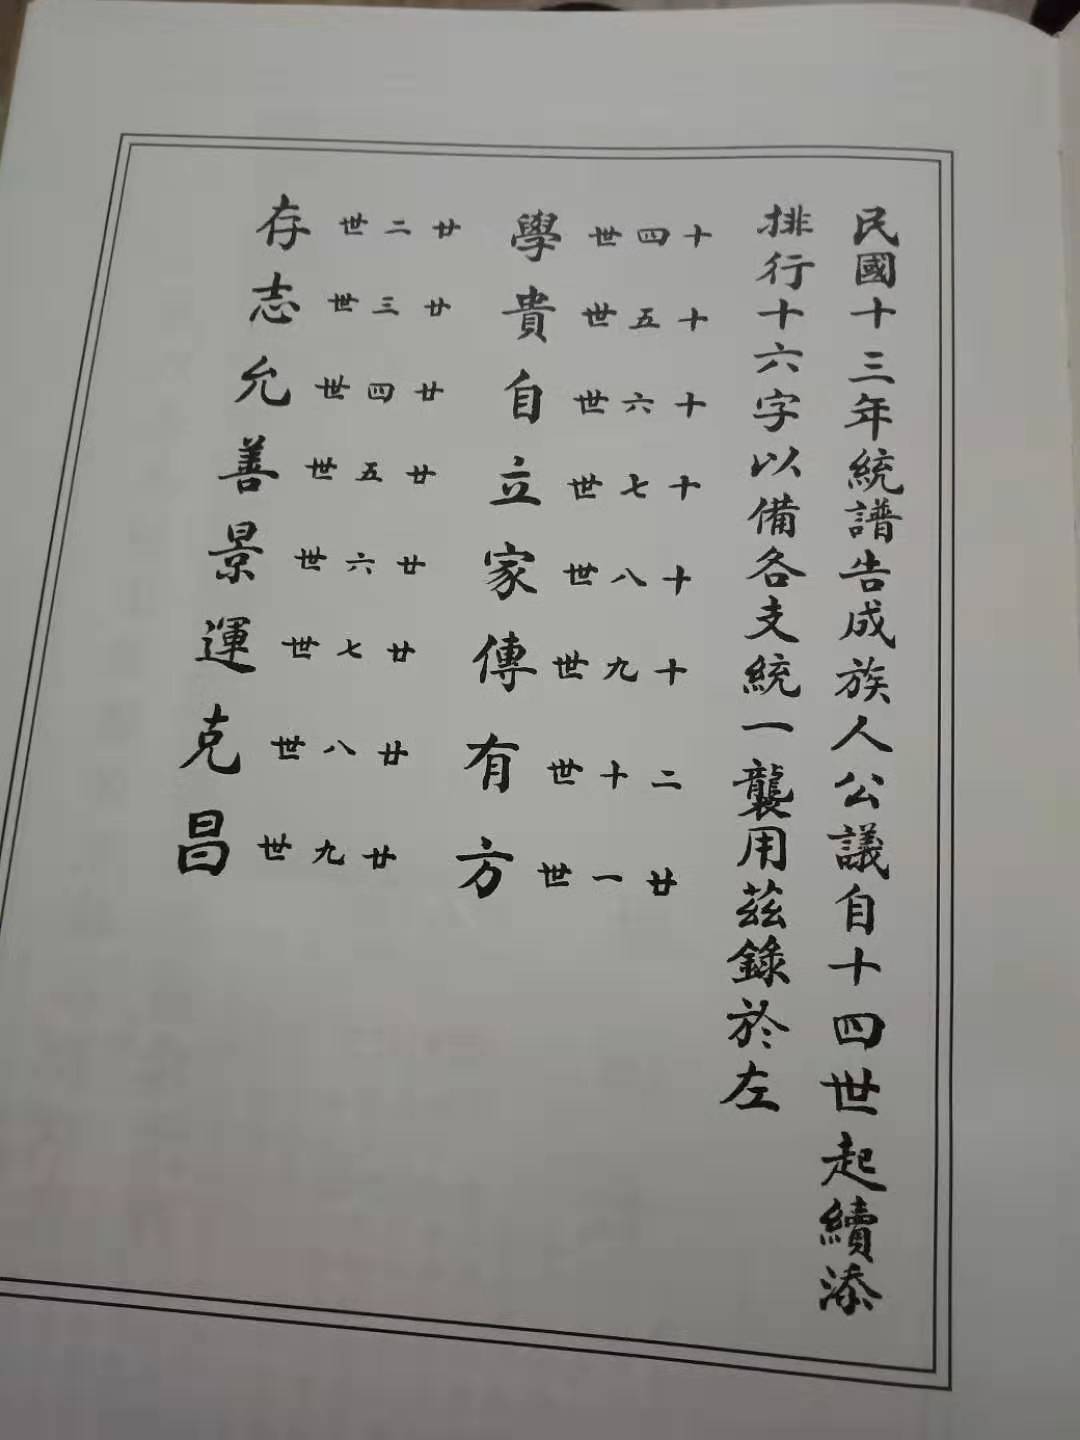 民國十三年統譜告成族人公議自十四世起續添
排行十六字以備各支統一襲用茲錄於左
十四世 學
十五世 貴
十六世 自
十七世 立
十八世 家
十九世 傳
二十世 有
廿一世 方
廿二世 存
廿三世 志
廿四世 允
廿五世 善
廿六世 景
廿七世 運
廿八世 克
廿九世 昌